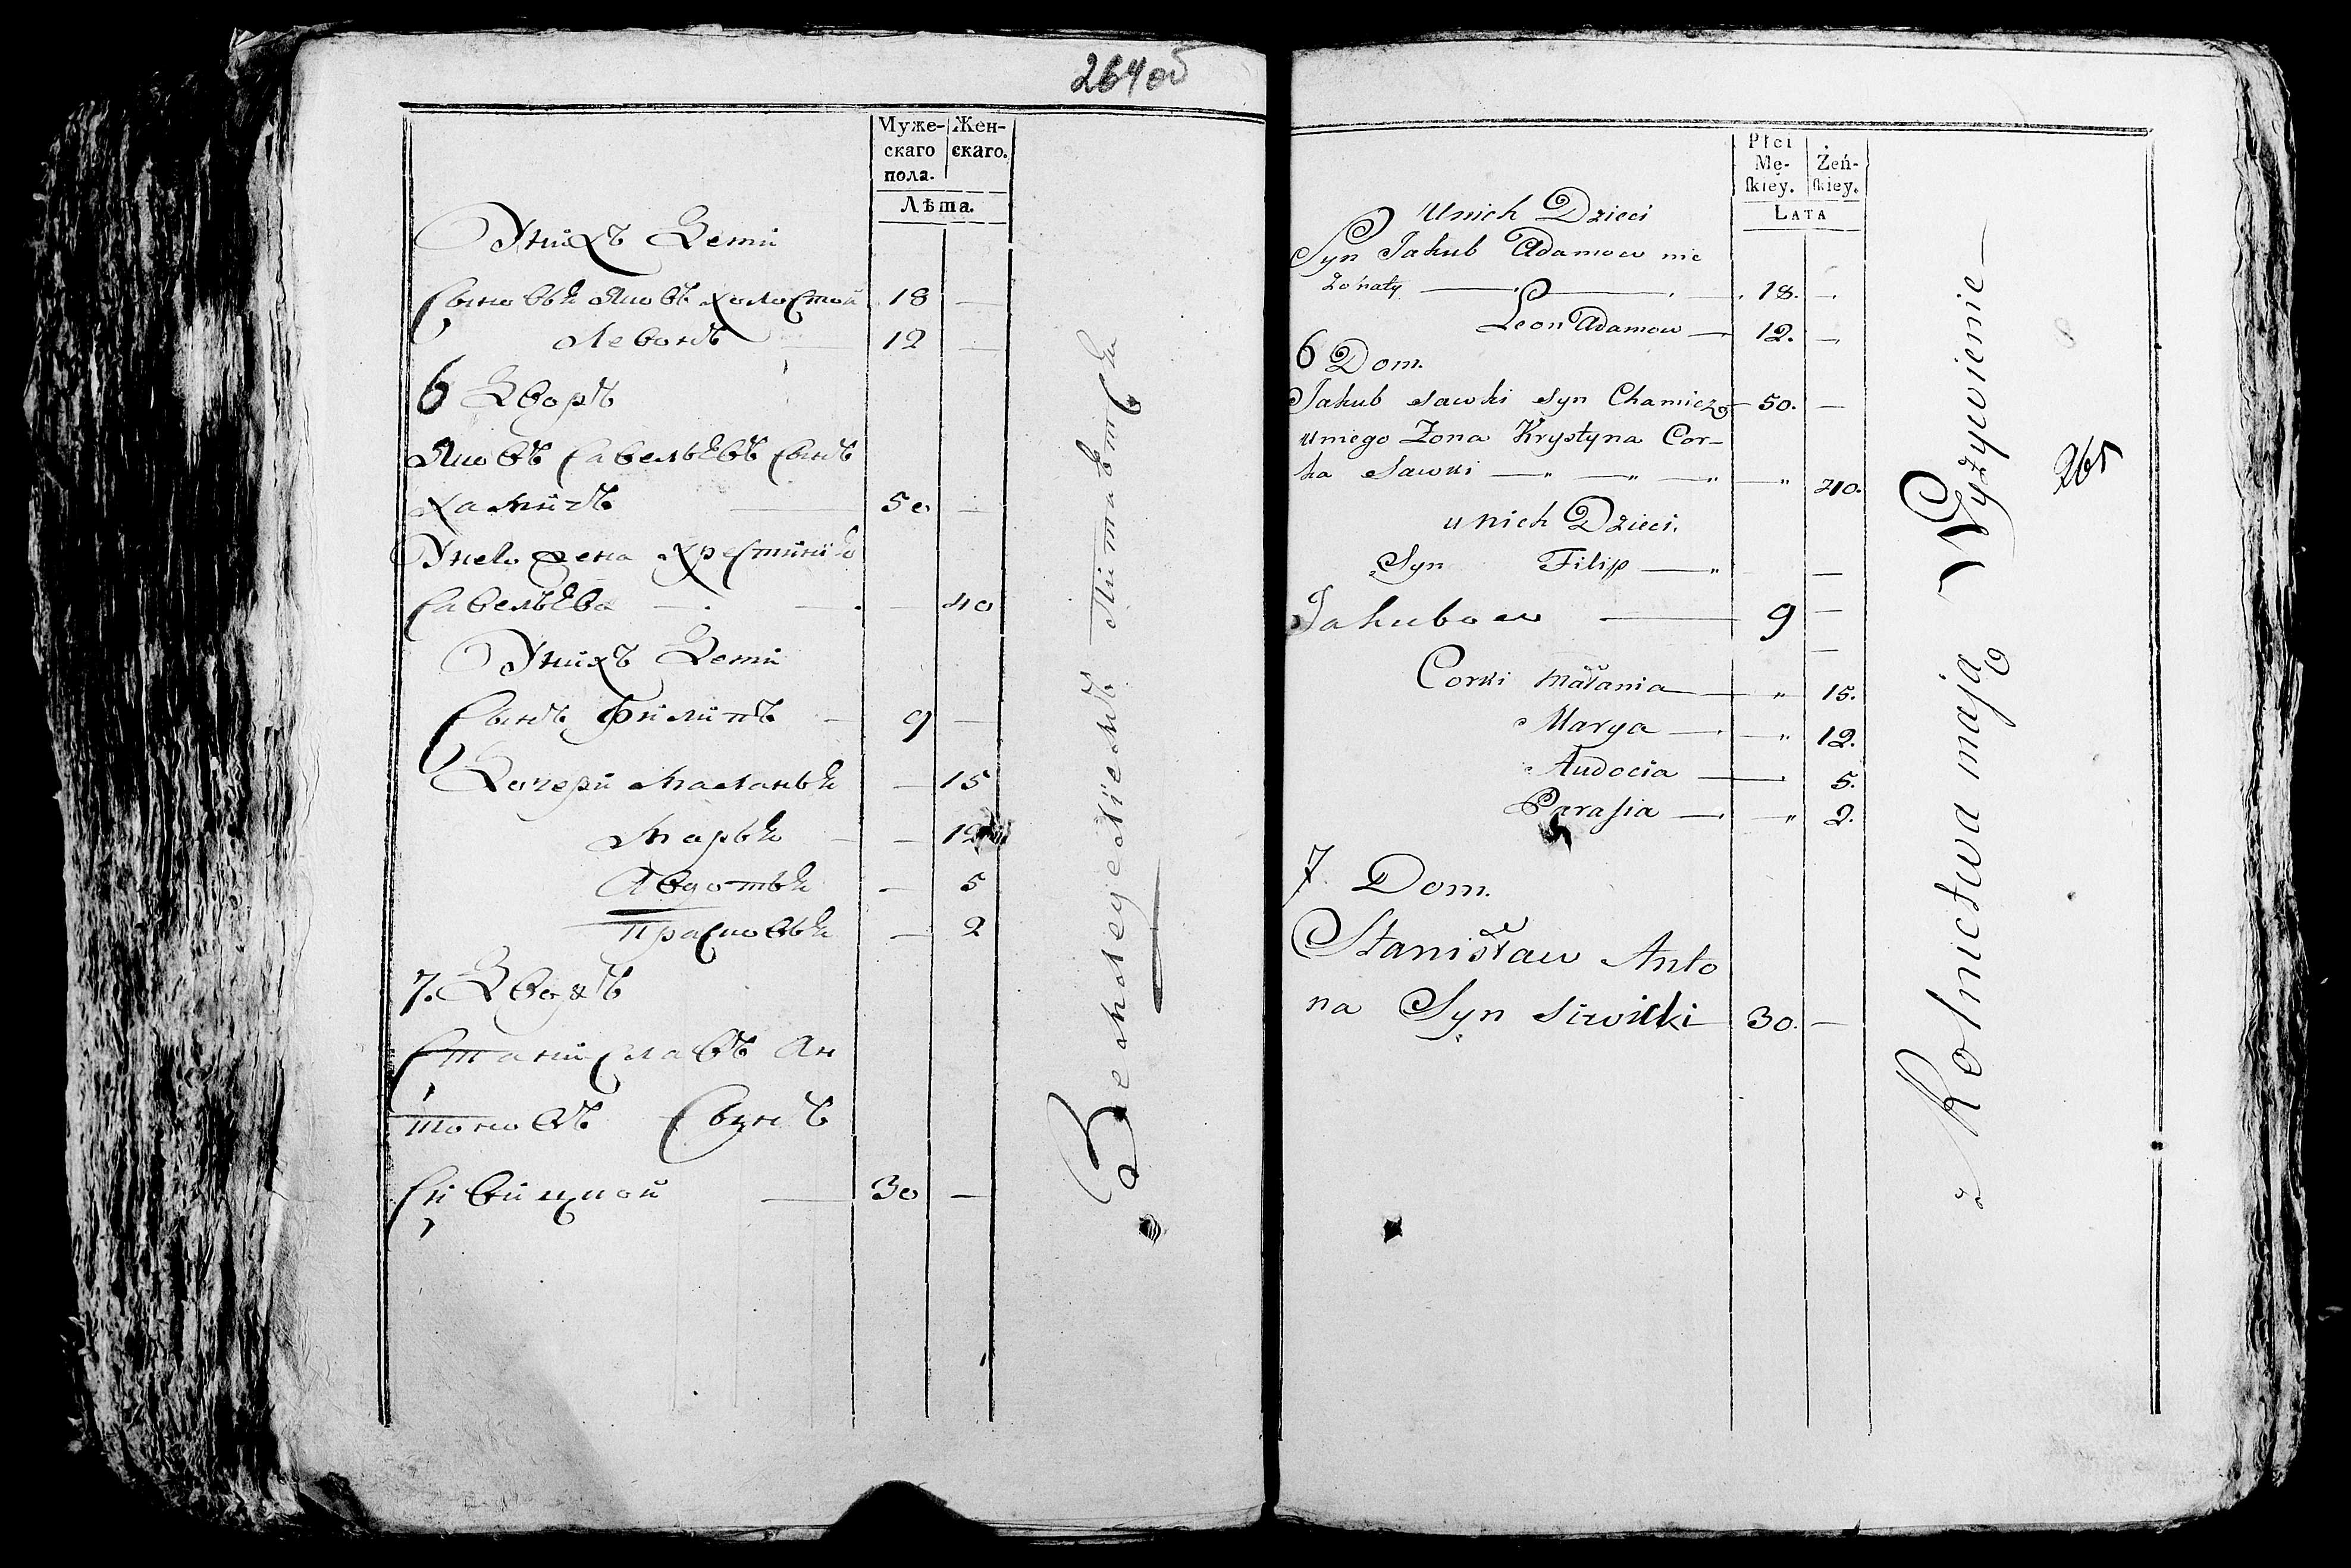 264 об
Муже- Жен-
скаго скаго.
пола.
Лѣта.
Унихъ Дети
Сыновья Яковъ холостой 18 —
Левонъ — 12 —
6 Дворъ
Яковъ Савельевъ Сынъ
Хамичъ — 50 —
Унево жена Хрестиния
Савельева — 40
Унихъ Дети
Сынъ Филипъ — 9 —
Дочери Маланья — 15
Марья — — 12
Авдотья — 5
Прасковья — 2
7. Дворъ
Станиславъ Ан
тоновъ Сынъ
Сивицкой — 30 —
Земледеліемъ Питается
Płci
Mę- Żeń-
ſkiey. ſkiey.
LATA
Unich Dzieci
Syn Jakub Adamow nie
żonaty — 18. —
Leon Adamow — 12. —
6 Dom.
Jakub Sawki Syn Chamicz — 50. —
uniego Zona Krystyna Cor-
ka Sawki — " — " — " — " 40.
u nich Dzieci.
Syn Filip — " —
Jakubow — 9 —
Corki Małania — " 15.
Marya — " 12.
Audocia — 5.
Parasia — " 2.
7. Dom.
Stanisław Anto
na Syn Siwicki 30. —
z Rolnictwa mają Wyżywienie —
265